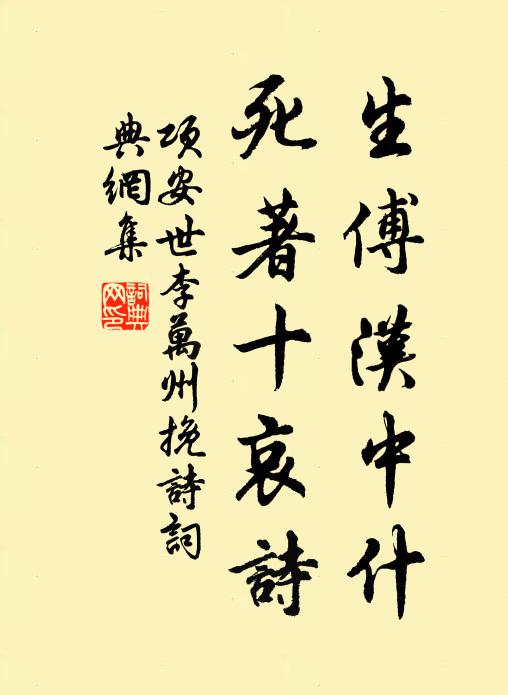 生傅漢中什
死著十哀詩
項安世李萬州挽詩詞
典網集
詞典網印